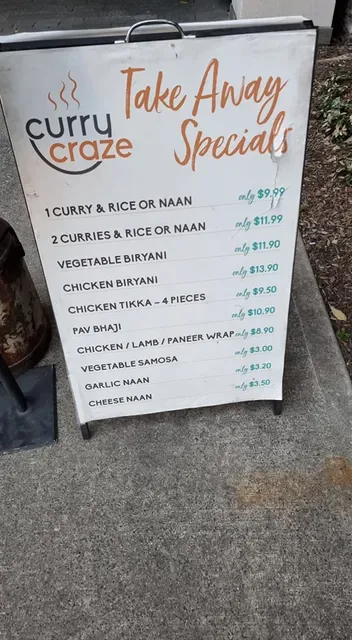 curry
craze
Take Away
Specials
1 CURRY & RICE OR NAAN only $9.99
2 CURRIES & RICE OR NAAN only $11.99
VEGETABLE BIRYANI only $11.90
CHICKEN BIRYANI only $13.90
CHICKEN TIKKA – 4 PIECES only $9.50
PAV BHAJI only $10.90
CHICKEN / LAMB / PANEER WRAP only $8.90
VEGETABLE SAMOSA only $3.00
GARLIC NAAN only $3.20
CHEESE NAAN only $3.50